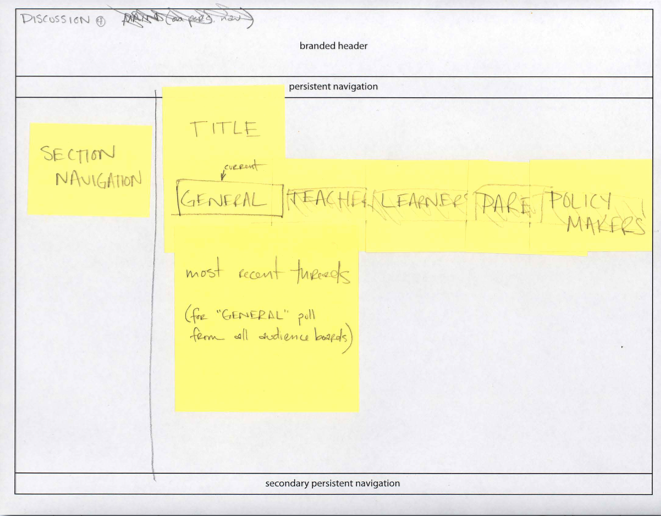 DISCUSSION
branded header
persistent navigation
TITLE
SECTION
NAVIGATION
current
GENERAL TEACHER LEARNERS PARE POLICY
MAKERS
most recent threads
(for "GENERAL" pull
from all audience boards)
secondary persistent navigation